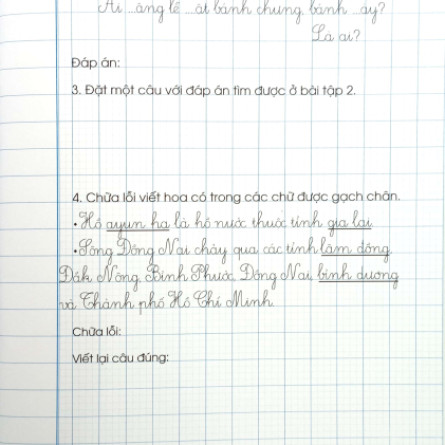 Ai ...ang lẽ ...ật bánh chưng, bánh ...ày?
Là ai?
Đáp án:
3. Đặt một câu với đáp án tìm được ở bài tập 2.
4. Chữa lỗi viết hoa có trong các chữ được gạch chân.
• Hồ ayun hạ là hồ nước thuộc tỉnh gia lai
• Sông Đồng Nai chảy qua các tỉnh lâm đồng,
Đắk Nông, Bình Phước, Đồng Nai, bình dương
và Thành phố Hồ Chí Minh.
Chữa lỗi:
Viết lại câu đúng: